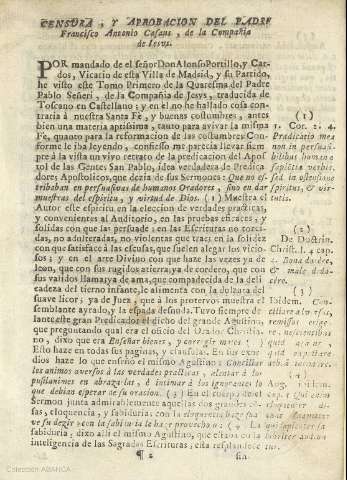 CENSURA, Y APROBACION DEL PADRE
Francisco Antonio Casaus, de la Compañia
de Jesus.
POR mandado de el señor Don Alonso Portillo, y Car-
dos, Vicario de esta Villa de Madrid, y su Partido,
he visto este Tomo Primero de la Quaresma del Padre
Pablo Señeri, de la Compañia de Jesvs, traducida de
Toscano en Castellano; y en el no he hallado cosa con-
traria à nuestra Santa Fè, y buenas costumbres; antes
bien una materia aptissima, tanto para avivar la misma
Fè, quanto para la reformacion de las costumbres. Con-
forme le iba leyendo, confiesso me parecia llevar siem-
pre à la vista un vivo retrato de la predicacion del Apos-
tol de las Gentes San Pablo, idea verdadera de Predica-
dores Apostolicos, que decia de sus Sermones: Que no es-
trivaban en persuasivas de humanos Oradores, sino en dar
muestras del espiritu, y virtud de Dios. (1) Muestra el
Autor este espiritu en la eleccion de verdades practicas,
y convenientes al Auditorio, en las pruebas eficaces, y
solidas con que las persuade; en las Escrituras no torci-
das, no adulteradas, no violentas que trae; en la solidez
con que satisface à las escusas, que suelen alegar los vicio-
sos; y en el arte Divino con que hace las veces yà de
leon, que con sus rugidos aterra; yà de cordero, que con
sus validos llama; yà de ama, que compadecida de la deli-
cadeza del tierno infante, le alimenta con la dulzura del
suave licor; yà de Juez, que à los protervos muestra el
semblante ayrado, y la espada desnuda. Tuvo siempre de-
lante este gran Predicador el dicho del grande Agustino,
que preguntando qual era el oficio del Orador Christia-
no, dixo que era Enseñar bienes, y corregir males
Esto hace en todas sus paginas, y clausulas. En sus exor-
dios haze lo que enseño el mismo Agustino: Conciliar
los animos aversos à las verdades practicas, alentar à los
pusilanimes en abrazarlas, è intimar à los ignorantes lo
que debian esperar de su oracion. (3) En el cuerpo de el
Sermon junta admirablemente aquellas dos grandes co-
sas, eloquencia, y sabiduria: con la eloquencia hace sua-
ve su decir con la sabiduria le hace provechoso. La
sabiduria, dixo allì el mismo Agustino, que estaba en la
inteligencia de las Sagradas Escrituras; esta resplandece
¶ 2
(1)
1. Cor. 2. 4.
Prædicatio mea
non in persuasi-
bilibus humanæ
sapientiæ verbis,
sed in ostensione
spiritus, & vir-
tutis.
(2)
De Doctrin.
Christ. l. 4. cap.
2. Bona docere,
& mala dedo-
cere.
(3)
Ibidem. Con-
ciliare aversos,
remissos erige-
re
Colección ABANCA